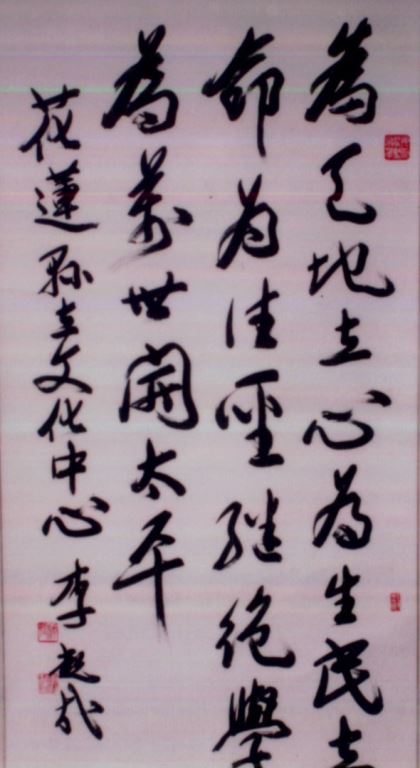 為天地立心為生民立
命為往聖繼絕學
為萬世開太平
花蓮縣立文化中心 李超哉